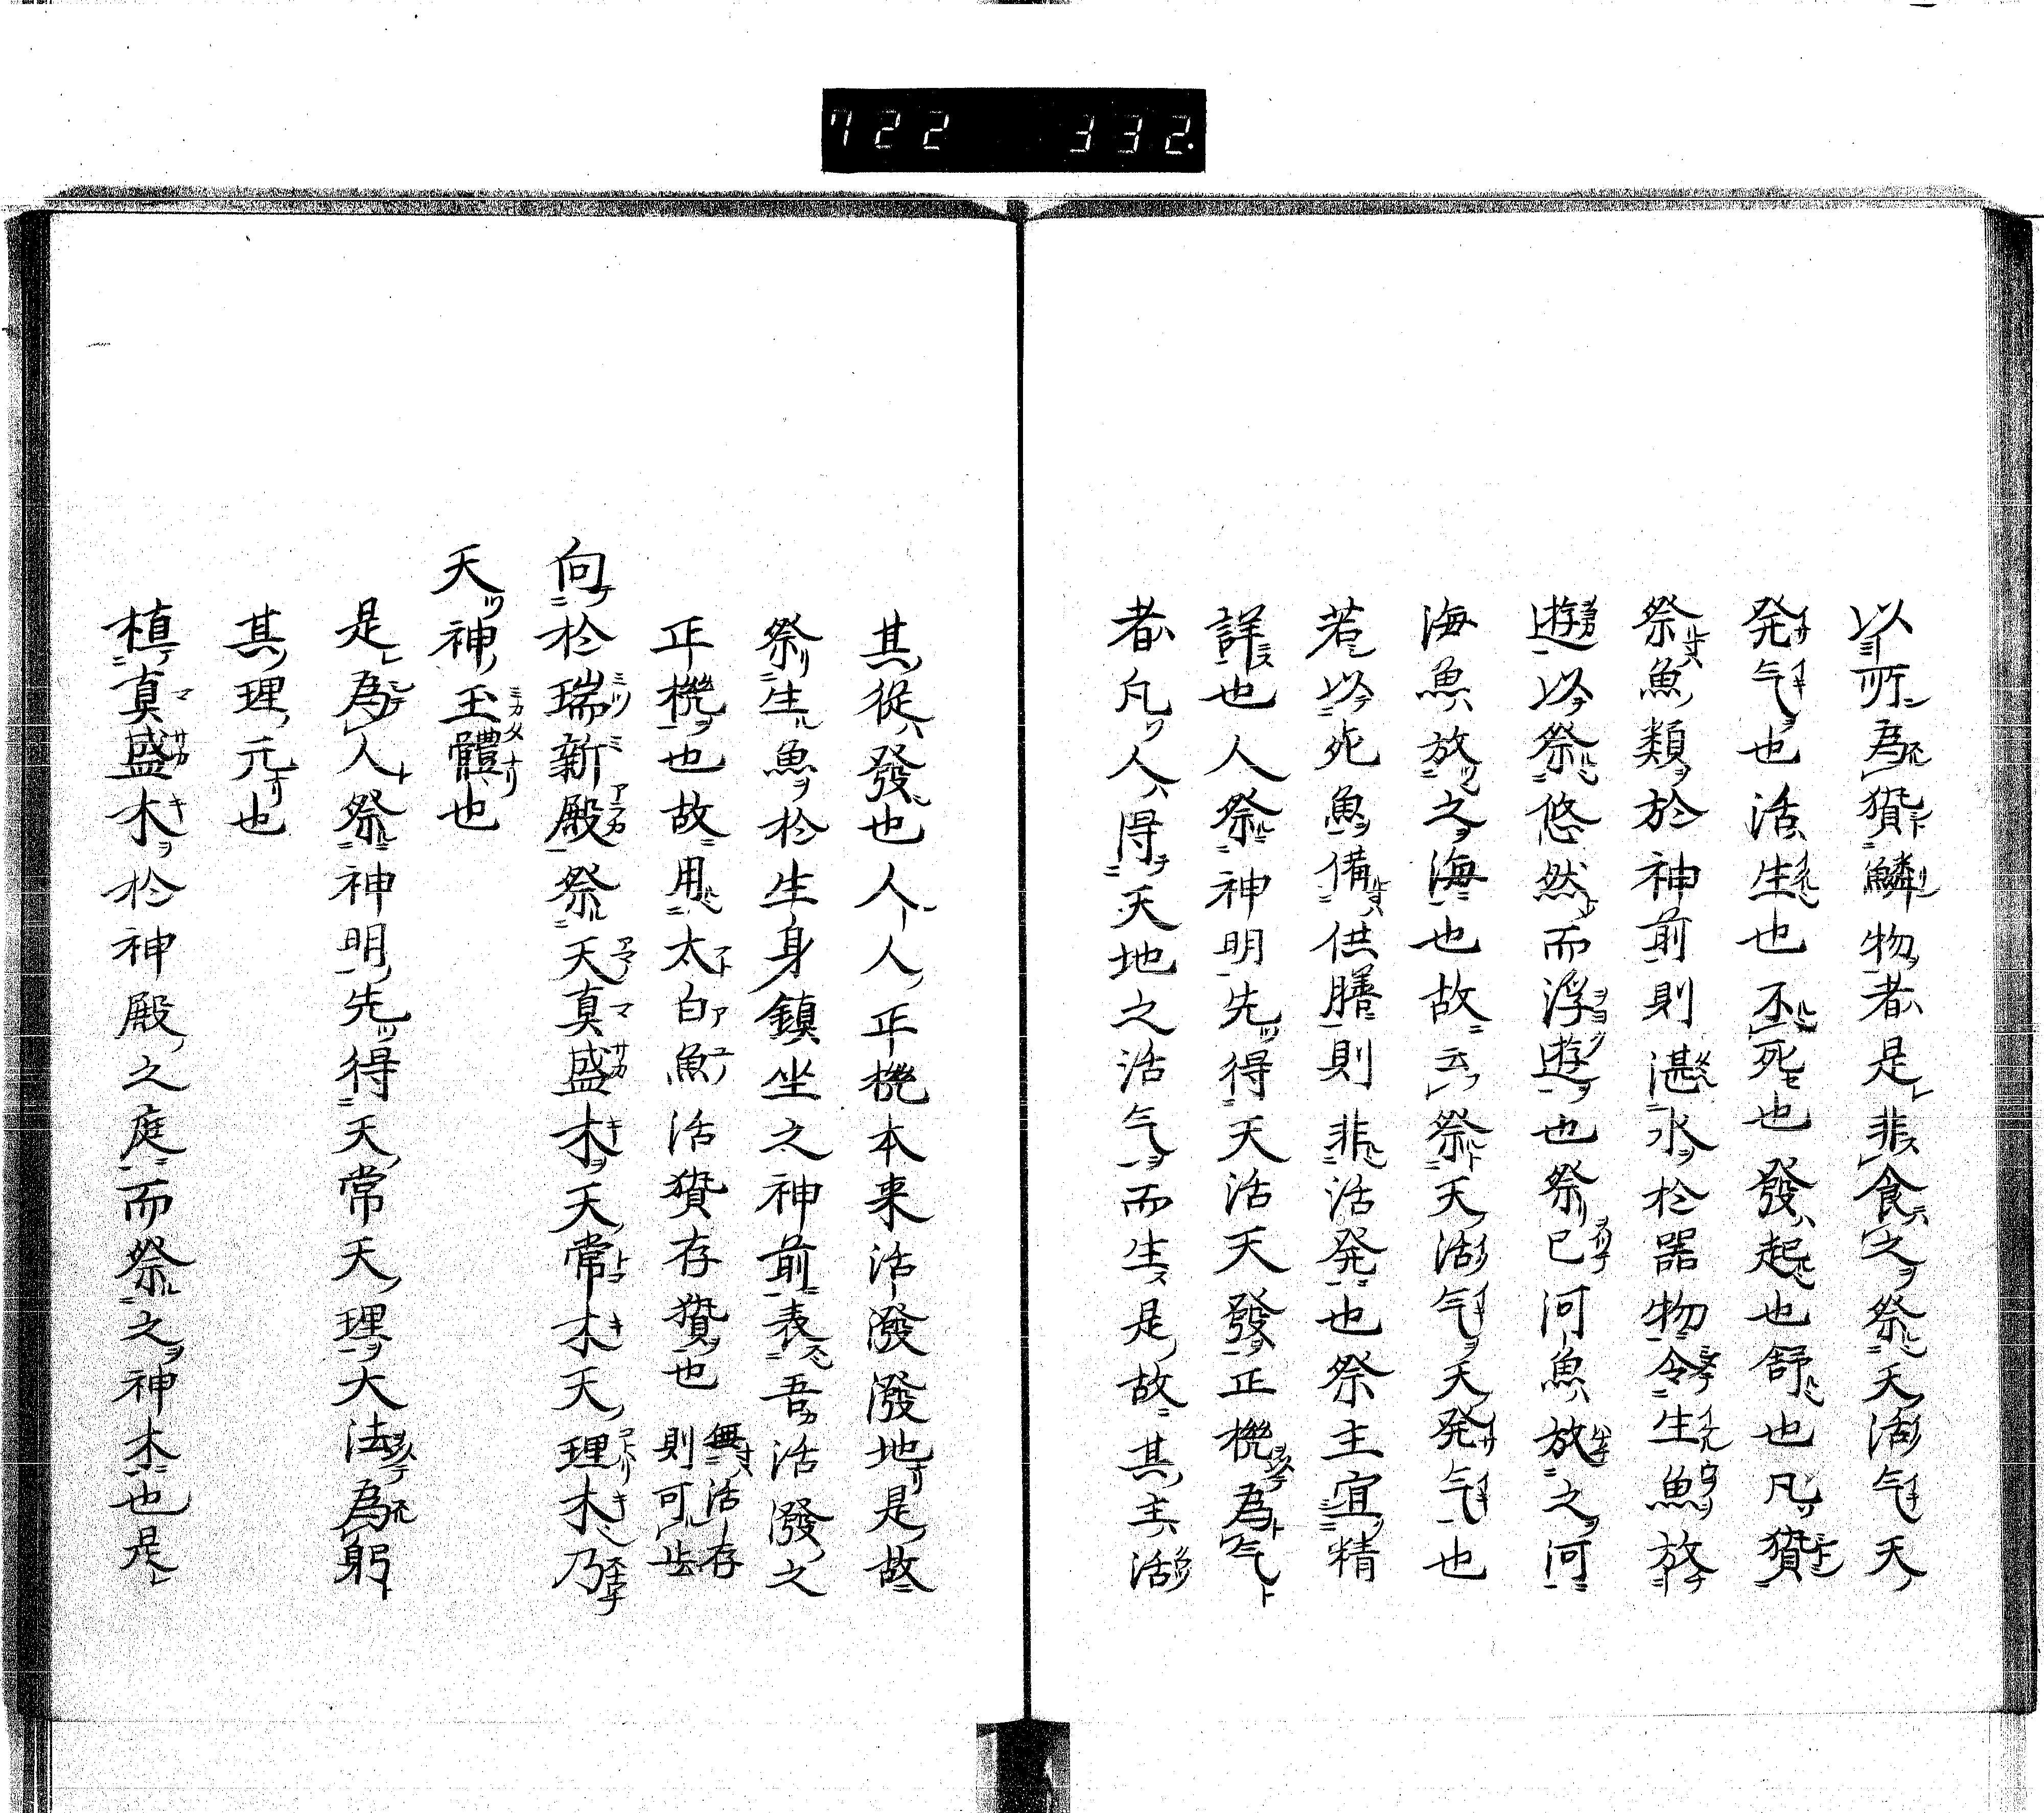 722 332.
以所為贄鱗物者是非食之祭天活气天
発气也活生也不死也發起也舒也凡贄
祭魚類於神前則湛水於器物令生魚放
遊以祭悠然而浮遊也祭已河魚放之河
海魚放之海也故云祭天活气天発气也
若以死魚備供膳則非活発也祭主宜精
詳也人祭神明先得天活天發正機為气
者凡人得天地之活气而生是故其主活
其從發也人人正機本来活潑潑地是故
祭生魚於生身鎮坐之神前表吾活潑之
正機也故用太白魚活贄存贄也無活存則可止
向於瑞新殿祭天真盛木天常木天理木乃
天神玉體也
是為人祭神明先得天常天理大法為躬
其理元也
植真盛木於神殿之庭而祭之神木也是